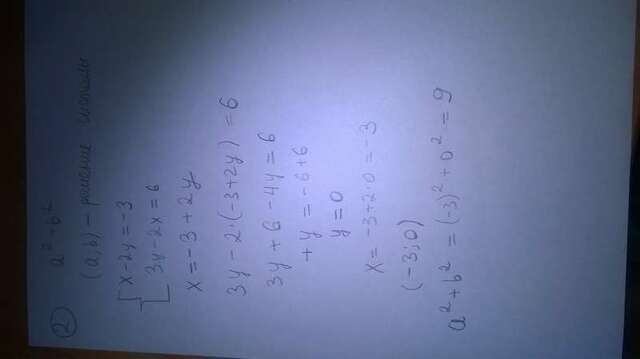 ② a² - b²
(a,b) - решение системы
x - 2y = -3
3y - 2x = 6
x = -3 + 2y
3y - 2·(-3+2y) = 6
3y + 6 - 4y = 6
+y = -6+6
y = 0
x = -3+2·0 = -3
(-3;0)
a² + b² = (-3)² + 0² = 9